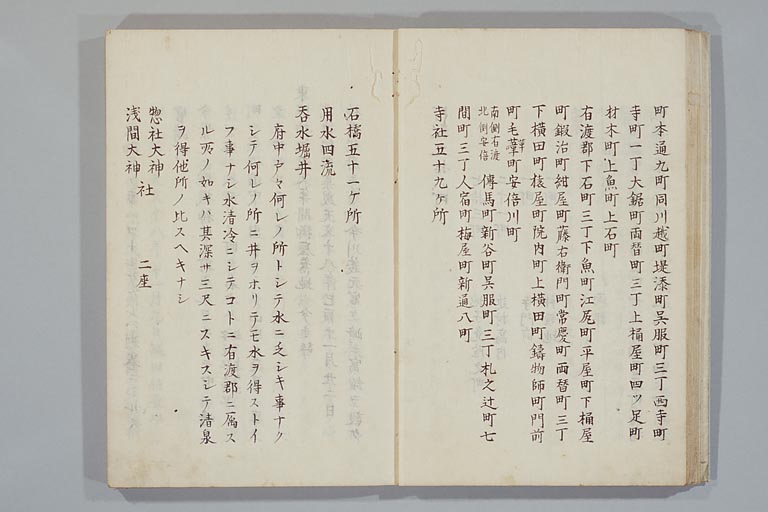 町本通九町同川越町堤添町呉服町三丁西寺町
寺町一丁大鋸町両替町三丁上桶屋町四ツ足町
材木町上魚町上石町
有渡郡下石町三丁下魚町江尻町平屋町下桶屋
町鍛治町紺屋町藤右衛門町常慶町両替町三丁
下横田町猿屋町院内町上横田町鋳物師町門前
町毛革町安倍川町
南側有渡
北側安倍
傳馬町新谷町呉服町三丁札之辻町七
間町三丁人宿町梅屋町新通八町
寺社五十九ヶ所
石橋五十一ヶ所
用水四流
呑水堀井
府中戸々何レノ所トシテ水ニ乏シキ事ナク
シテ何レノ所ニ井ヲホリテモ水ヲ得ストイ
フ事ナシ水清冷ニシテコトニ有渡郡ニ属ス
ル所ノ如キハ其深サ三尺ニスキスシテ清泉
ヲ得他所ノ比スヘキナシ
惣社大神
社 二座
浅間大神